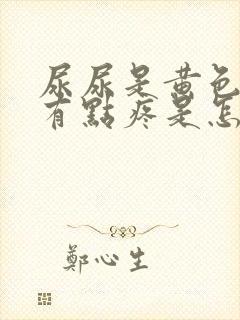 尿尿是黃色
有點疼是怎
鄭心生